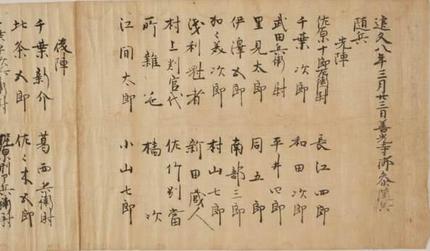 建久八年三月廿三日善光寺御参隨兵
随兵
先陣
佐原十郎左衛門尉 長江四郎
千葉次郎 和田次郎
武田兵衛尉 平井四郎
里見太郎 同五郎
伊澤五郎 南部三郎
加々美次郎 村山七郎
浅利冠者 新田蔵人
村上判官代 佐竹別當
所雑色 橘次
江間太郎 小山七郎
後陣
千葉新介 葛西兵衛尉
北条五郎 佐々木五郎